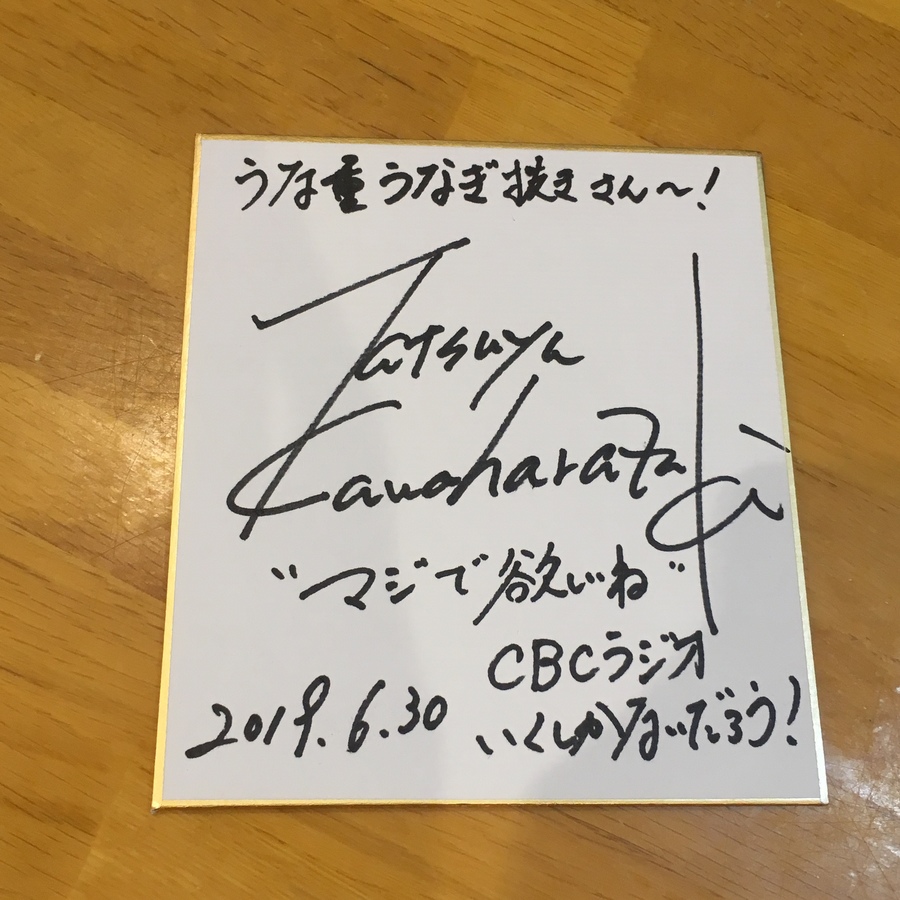 うな重うなぎ抜きさん〜!
Tatsuya
Kawaharazuki
"マジで欲しいね"
CBCラジオ
いくしかないだろう!
2019.6.30